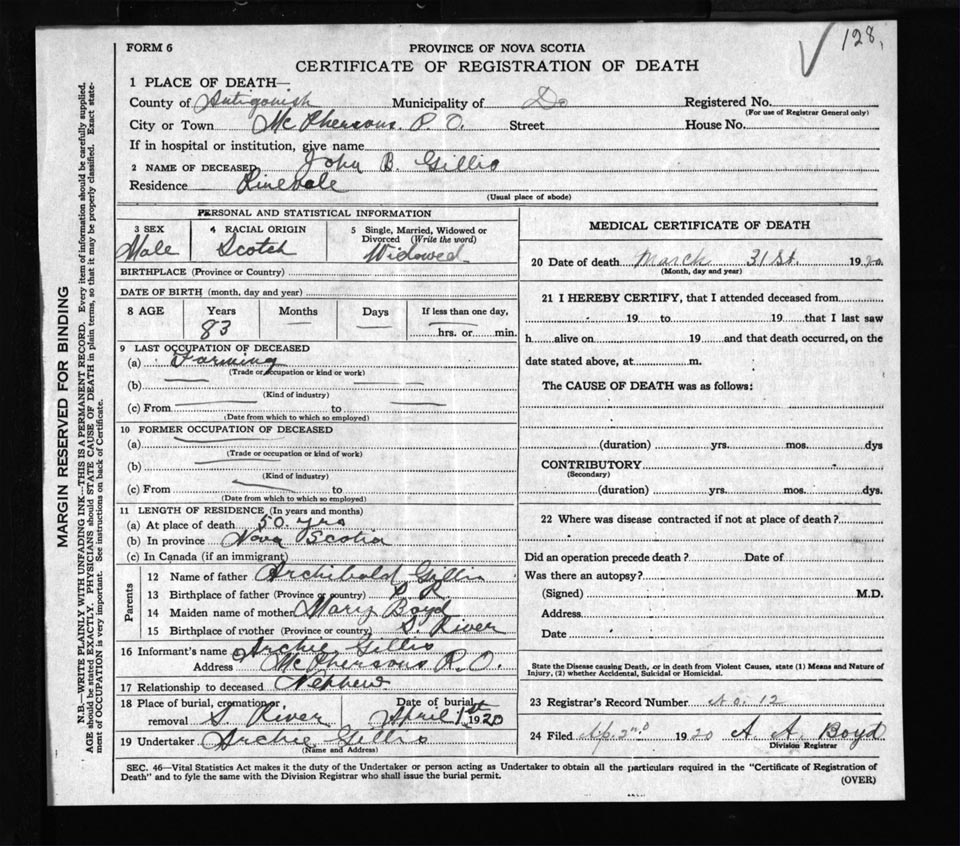 128.
FORM 6
PROVINCE OF NOVA SCOTIA
CERTIFICATE OF REGISTRATION OF DEATH
1 PLACE OF DEATH—
County of Antigonish Municipality of Do Registered No.
(For use of Registrar General only)
City or Town McPhersons. P. O. Street House No.
If in hospital or institution, give name
2 NAME OF DECEASED John B. Gillis
Residence Pinevale
(Usual place of abode)
PERSONAL AND STATISTICAL INFORMATION
3 SEX 4 RACIAL ORIGIN 5 Single, Married, Widowed or
Divorced (Write the word)
Male Scotch Widowed
BIRTHPLACE (Province or Country)
DATE OF BIRTH (month, day and year)
8 AGE Years Months Days If less than one day,
83 hrs. or min.
9 LAST OCCUPATION OF DECEASED
(a) Farming
(Trade or occupation or kind or work)
(b)
(Kind of industry)
(c) From to
(Date from which to which so employed)
10 FORMER OCCUPATION OF DECEASED
(a)
(Trade or occupation or kind of work)
(b)
(Kind of industry)
(c) From to
(Date from which to which so employed)
11 LENGTH OF RESIDENCE (In years and months)
(a) At place of death 50. yrs
(b) In province Nova Scotia
(c) In Canada (if an immigrant)
Parents
12 Name of father Archibald Gillis
13 Birthplace of father (Province or country) S. R
14 Maiden name of mother Mary Boyd
15 Birthplace of mother (Province or country) S. River
16 Informant's name Archie Gillis
Address McPhersons P.O.
17 Relationship to deceased Nephew
18 Place of burial, cremation or Date of burial
removal S. River April 1st 1920
19 Undertaker Archie Gillis
(Name and Address)
MEDICAL CERTIFICATE OF DEATH
20 Date of death March 31st. 1920
(Month, day and year)
21 I HEREBY CERTIFY, that I attended deceased from
19 to 19 that I last saw
h alive on 19 and that death occurred, on the
date stated above, at m.
The CAUSE OF DEATH was as follows:
(duration) yrs. mos. dys
CONTRIBUTORY
(Secondary)
(duration) yrs. mos. dys.
22 Where was disease contracted if not at place of death?
Did an operation precede death? Date of
Was there an autopsy?
(Signed) M.D.
Address
Date
State the Disease causing Death, or in death from Violent Causes, state (1) Means and Nature of
Injury, (2) whether Accidental, Suicidal or Homicidal.
23 Registrar's Record Number No. 12
24 Filed Ap. 2nd 1920 A. A. Boyd
Division Registrar
SEC. 46—Vital Statistics Act makes it the duty of the Undertaker or person acting as Undertaker to obtain all the particulars required in the "Certificate of Registration of
Death" and to fyle the same with the Division Registrar who shall issue the burial permit.
(OVER)
MARGIN RESERVED FOR BINDING
N.B.—WRITE PLAINLY WITH UNFADING INK—THIS IS A PERMANENT RECORD. Every item of information should be carefully supplied.
AGE should be stated EXACTLY. PHYSICIANS should STATE CAUSE OF DEATH in plain terms, so that it may be properly classified. Exact state-
ment of OCCUPATION is very important. See instructions on back of Certificate.